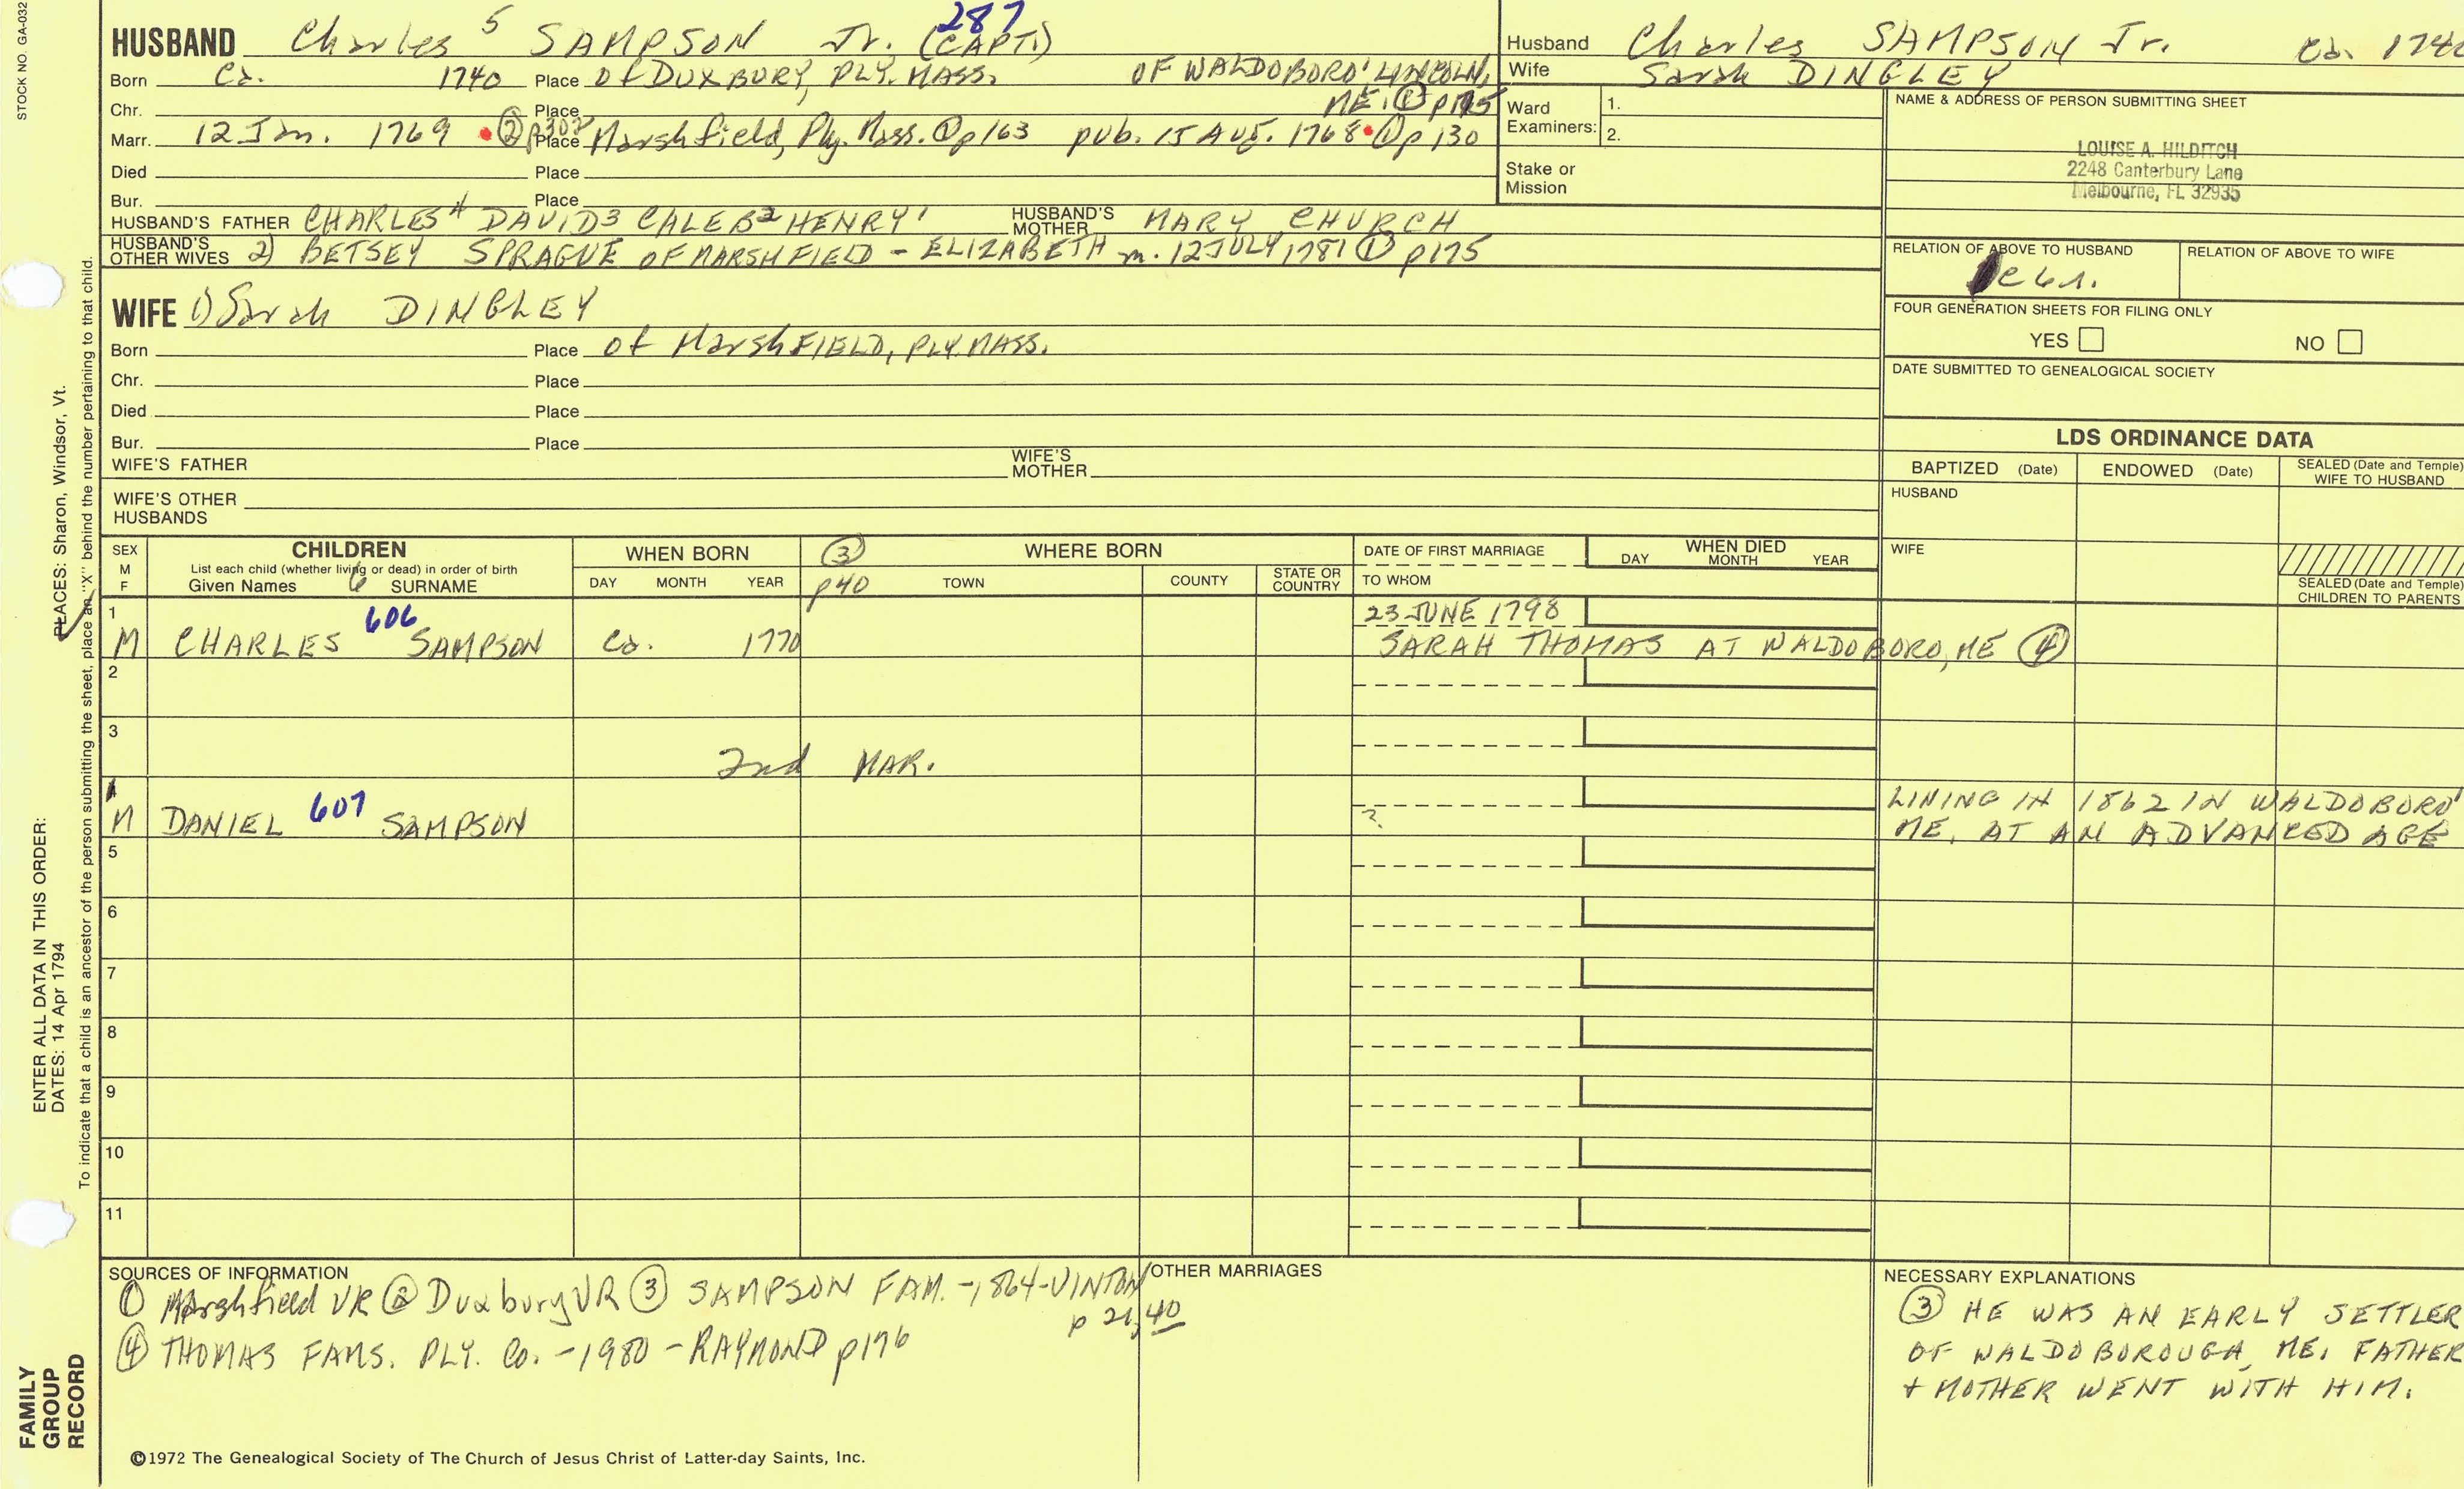 STOCK NO. GA-032
287
HUSBAND Charles 5 SAMPSON Jr. (CAPT.)
Born Ca. 1740 Place of DUXBURY, PLY. MASS. OF WALDOBORO' LINCOLN,
ME. ① p175
Chr. Place
Marr. 12 Jan. 1769 ② p302 Place Marshfield, Ply. Mass. ① p163 pub. 15 Aug. 1768 ① p130
Died Place
Bur. Place
HUSBAND'S FATHER CHARLES4 DAVID3 CALEB2 HENRY1 HUSBAND'S MOTHER MARY CHURCH
HUSBAND'S OTHER WIVES 2) BETSEY SPRAGUE OF MARSHFIELD - ELIZABETH m. 12 JULY 1781 ① p175
WIFE 1) Sarah DINGLEY
Born Place of MarshFIELD, PLY. MASS.
Chr. Place
Died Place
Bur. Place
WIFE'S FATHER WIFE'S MOTHER
WIFE'S OTHER HUSBANDS
Husband Charles SAMPSON Jr. Ca. 1740
Wife Sarah DINGLEY
Ward Examiners: 1.
2.
Stake or Mission
NAME & ADDRESS OF PERSON SUBMITTING SHEET
LOUISE A. HILDITCH
2248 Canterbury Lane
Melbourne, FL 32935
RELATION OF ABOVE TO HUSBAND RELATION OF ABOVE TO WIFE
FOUR GENERATION SHEETS FOR FILING ONLY
YES NO
DATE SUBMITTED TO GENEALOGICAL SOCIETY
LDS ORDINANCE DATA
BAPTIZED (Date) ENDOWED (Date) SEALED (Date and Temple) WIFE TO HUSBAND
HUSBAND
WIFE
SEALED (Date and Temple) CHILDREN TO PARENTS
SEX M F CHILDREN
List each child (whether living or dead) in order of birth
Given Names 6 SURNAME
WHEN BORN
DAY MONTH YEAR
③ WHERE BORN
p40 TOWN COUNTY STATE OR COUNTRY
DATE OF FIRST MARRIAGE
TO WHOM
WHEN DIED
DAY MONTH YEAR
1 23 JUNE 1798
M CHARLES 606 SAMPSON Ca. 1770 SARAH THOMAS AT WALDOBORO, ME ④
2
3
2nd MAR.
4 LINING IN 1862 IN WALDOBORO'
M DANIEL 607 SAMPSON ? ME. AT AN ADVANCED AGE
5
6
7
8
9
10
11
SOURCES OF INFORMATION
① Marshfield VR ② Duxbury VR ③ SAMPSON FAM. -1864-VINTON
p 21, 40
④ THOMAS FAMS. PLY. Co. -1980 - RAYMOND p176
OTHER MARRIAGES
NECESSARY EXPLANATIONS
③ HE WAS AN EARLY SETTLER
OF WALDOBOROUGH, ME. FATHER
+ MOTHER WENT WITH HIM.
©1972 The Genealogical Society of The Church of Jesus Christ of Latter-day Saints, Inc.
FAMILY
GROUP
RECORD
ENTER ALL DATA IN THIS ORDER:
DATES: 14 Apr 1794
PLACES: Sharon, Windsor, Vt.
To indicate that a child is an ancestor of the person submitting the sheet, place an "X" behind the number pertaining to that child.